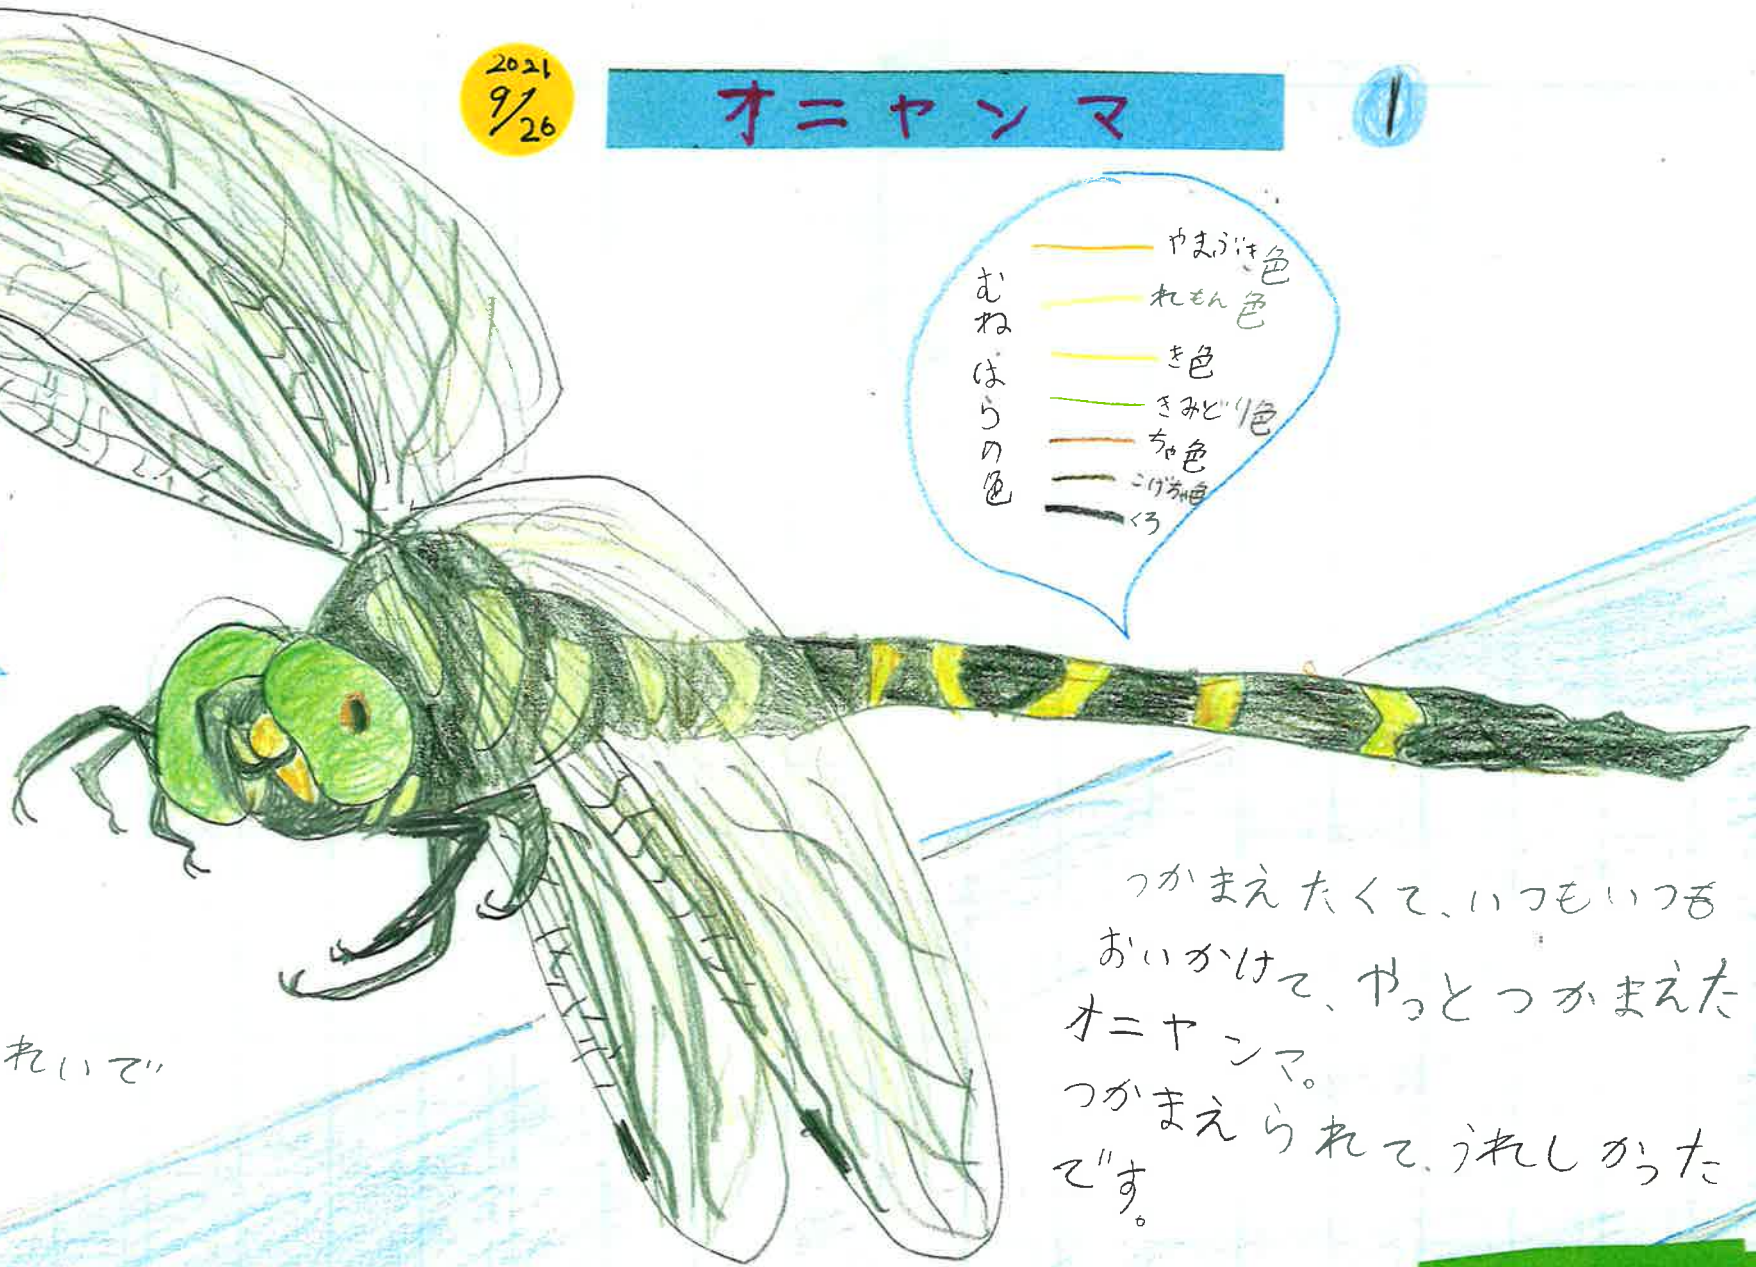 2021
9/26
オニヤンマ
1
むねはらの色
やまぶき色
れもん色
き色
きみどり色
ちゃ色
こげちゃ色
くろ
つかまえたくて、いつもいつも
おいかけて、やっとつかまえた
オニヤンマ。
つかまえられて、うれしかった
です。
れいで